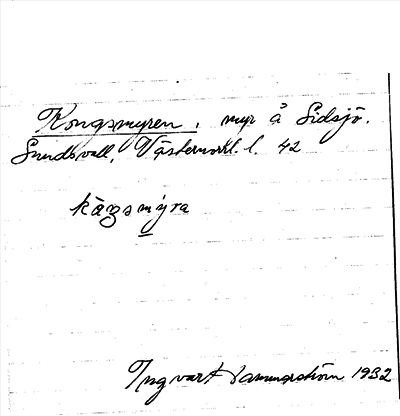 Kongsmyren, myr å Sidsjö.
Sundsvall, Västernorrl. l. 42
kåŋsmýra
Ingvart 1932